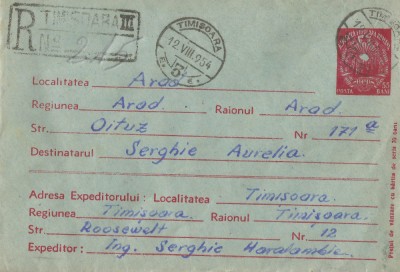 R TIMIȘOARA III
No
TIMIȘOARA
12.VIII.954
Localitatea Arad
Regiunea Arad Raionul Arad
Str. Oituz Nr 171 a
Destinatarul Serghie Aurelia.
Adresa Expeditorului : Localitatea Timișoara.
Regiunea Timișoara. Raionul Timișoara.
Str. Roosewelt Nr. 12
Expeditor : Ing. Serghie Haralambie.
POSTA 55 BANI
Prețul de vînzare cu hârtie de scris 70 bani